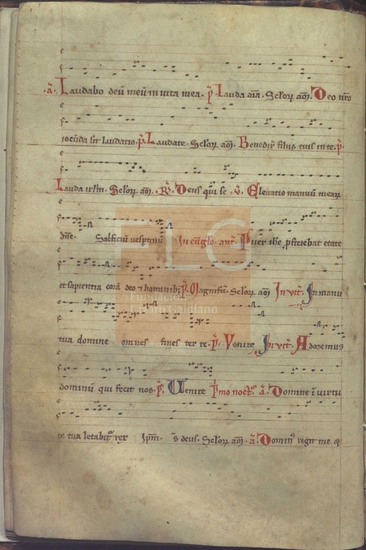 a. Laudabo deū meū in vita mea. p̄. Lauda aīa. Seloꝝ am̄. Deo nrō
iocūda sit laudatio. p̄. Laudate. Seloꝝ am̄. Benedix̄ filiis tuis in te. p̄.
Lauda irlm̄. Seloꝝ am̄. R̄. Deus qui se. v̄. Elevatio manuum mearū
dn̄e. Sacificiū vesptinū In evāglo. ant. Puer ihc̄ pficiebat etate
et sapientia corā deo et hominib; p̄. Magnificat. Seloꝝ am̄ Invit. In manu
tua domine omnes fines terre. p̄. Venite. Invit. Adoremus
dominū qui fecit nos. p̄. Venite p̄mo noct. a. Domine ī virtu
te tua letabit rex ip̄m. deus. Seloꝝ am̄. a. Domin' regit me et